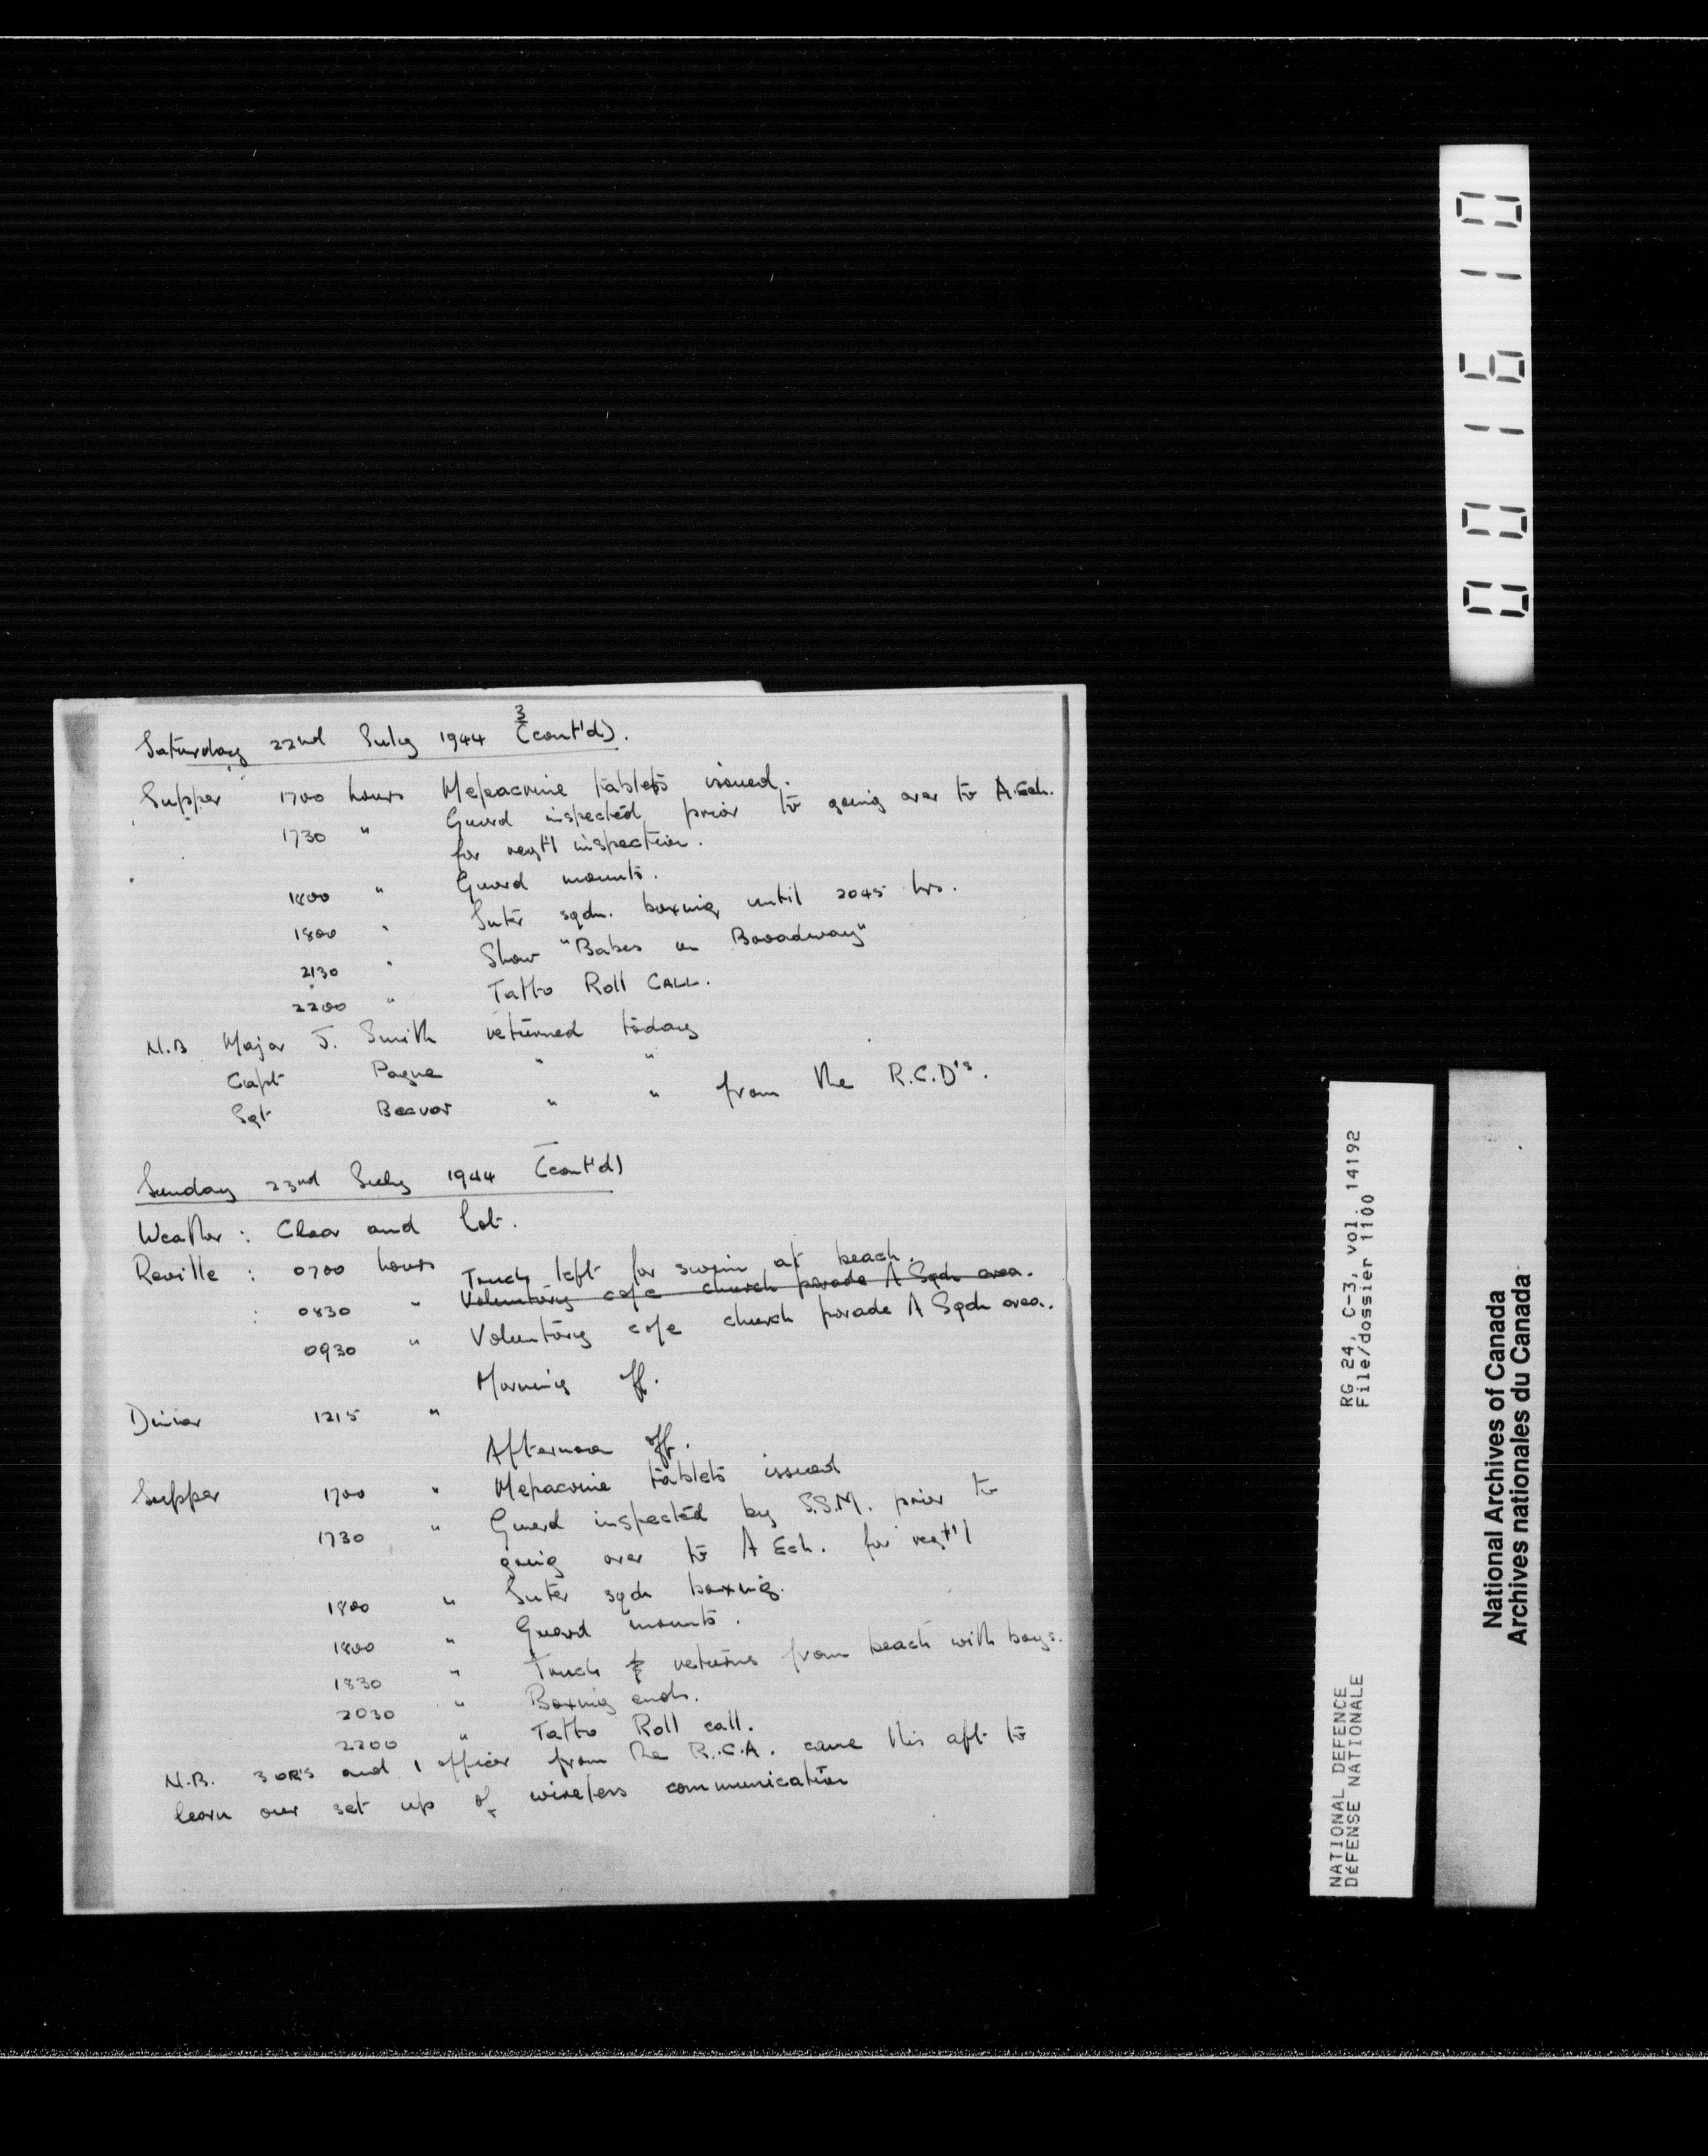 3
Saturday 22nd July 1944 (cont'd).
Supper 1700 hours Mepacrine tablets issued.
1730 " Guard inspected prior to going over to A.Ech.
for regt'l inspection.
1800 " Guard mounts.
1800 " Inter sqdn. boxing until 2045 hrs.
2130 " Show "Babes on Broadway"
2200 " Tatto Roll CALL.
N.B. Major J. Smith returned today
Capt Payne " "
Sgt Beaver " " from the R.C.D's.
Sunday 23nd July 1944 (cont'd)
Weather : Clear and hot.
Reville : 0700 hours
Truck left for swim at beach.
: 0830 " Voluntary cofe church parade A Sqdn area.
0930 " Voluntary cofe church parade A Sqdn area.
Morning off.
Dinner 1215 "
Afternoon off.
Supper 1700 " Mepacrine tablets issued
1730 " Guard inspected by S.S.M. prior to
going over to A Ech. for regt'l
1800 " Inter sqdn boxing.
1800 " Guard mounts.
1830 " Truck returns from beach with boys.
2030 " Boxing ends.
2200 " Tatto Roll call.
N.B. 3 OR's and 1 officer from the R.C.A. came this aft to
learn our set up of wireless communication
001610
NATIONAL DEFENCE RG 24, C-3, vol. 14192
DéFENSE NATIONALE File/dossier 1100
National Archives of Canada
Archives nationales du Canada